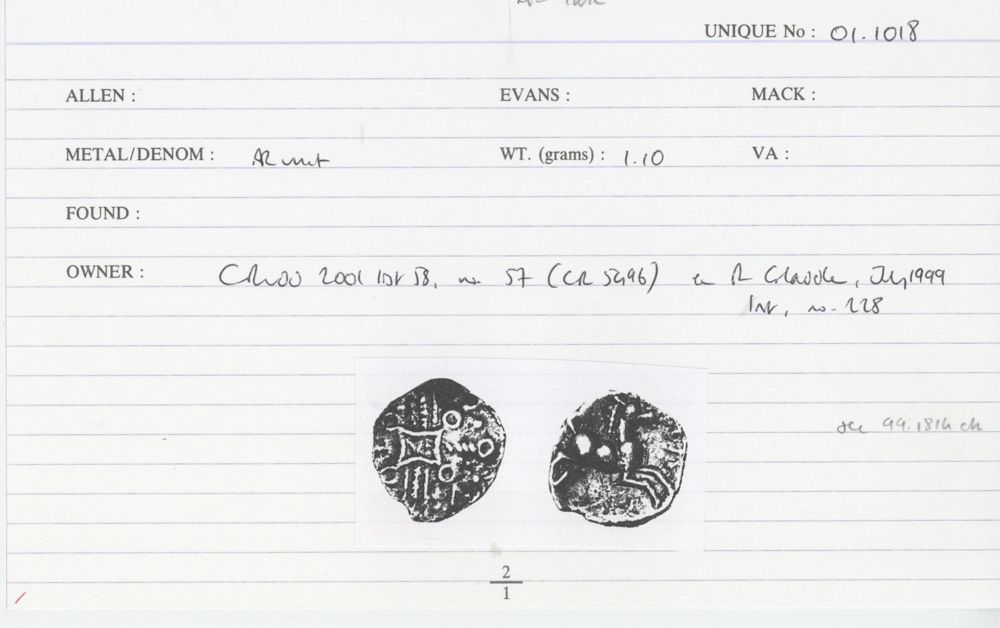 UNIQUE No : 01.1018
ALLEN : EVANS : MACK :
METAL/DENOM : AR unit WT. (grams) : 1.10 VA :
FOUND :
OWNER : 2001 list 58, no. 57 (CR 5496) ex R July 1999
list, no. 228
see 99.1814
2
1